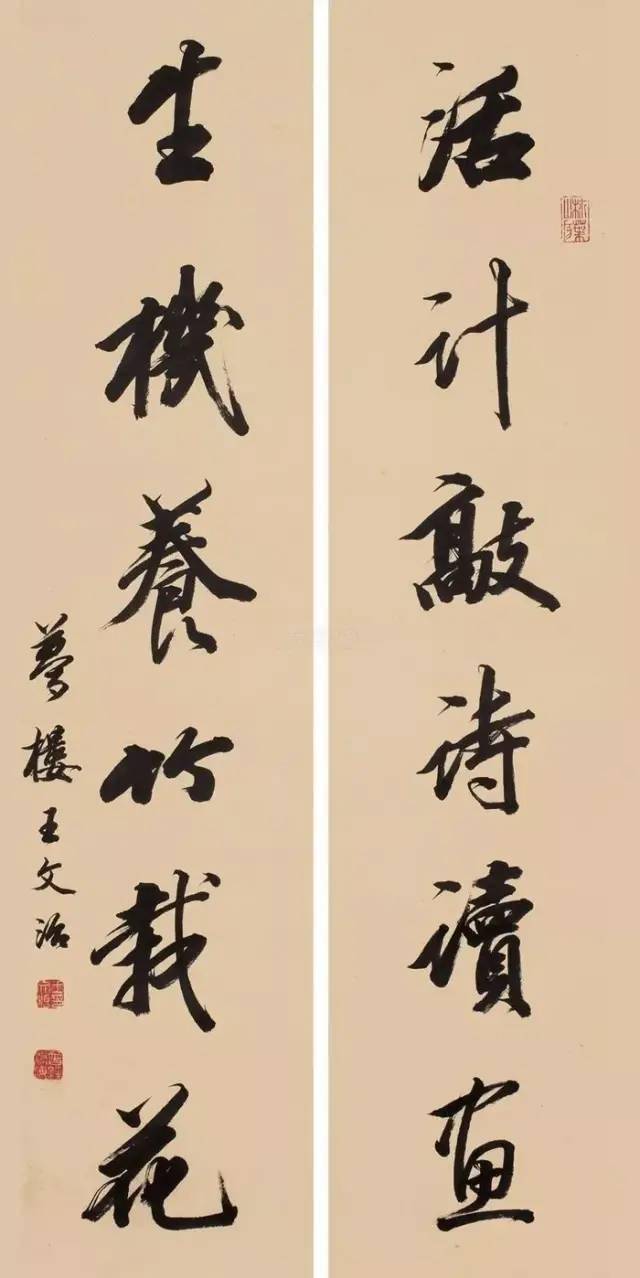 活計敲詩讀畫
生機養竹栽花
夢樓王文治